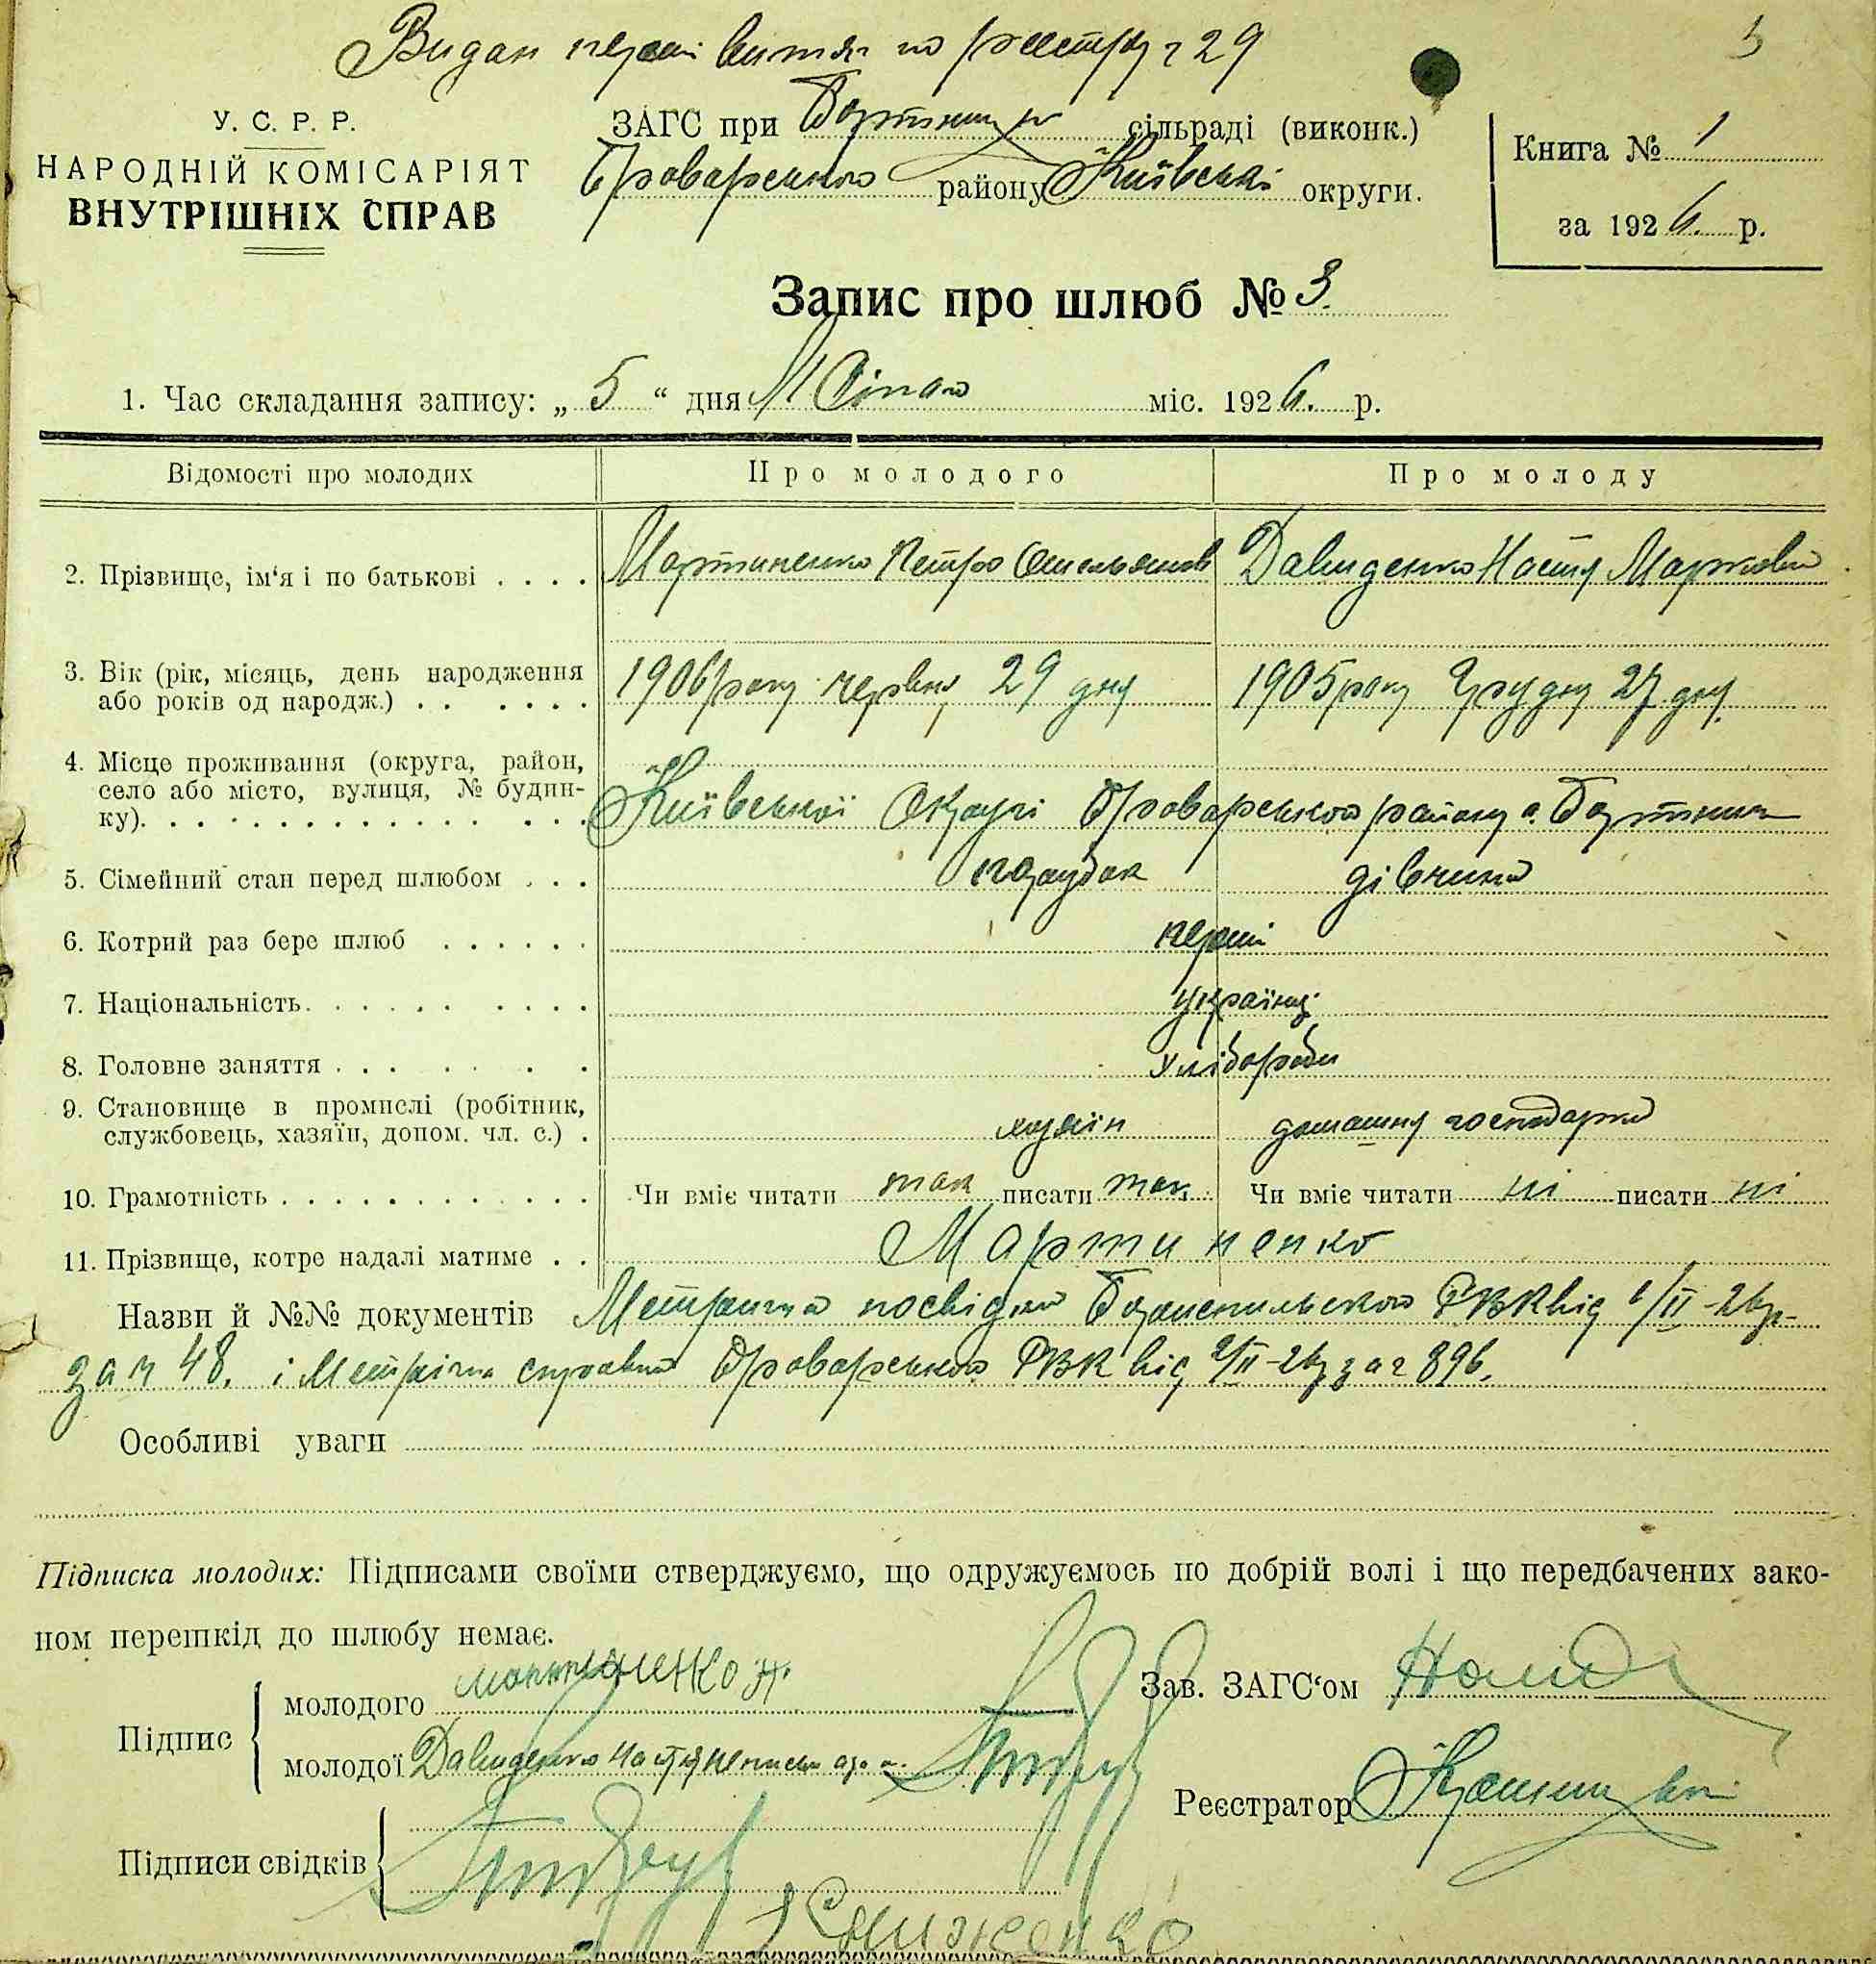 Видан перши витяг по реестру г 29
5
У. С. Р. Р.
НАРОДНІЙ КОМІСАРІЯТ
ВНУТРІШНІХ СПРАВ
ЗАГС при сільраді (виконк.)
Броварського району Київські округи.
Книга № 1
за 1926. р.
Запис про шлюб № 3.
1. Час складання запису: „ 5 “ дня міс. 1926. р.
Відомості про молодих Про молодого Про молоду
2. Прізвище, ім‘я і по батькові . . . . Мартиненко Петро Омельянов Давиденко Настя Маркова
3. Вік (рік, місяць, день народження
або років од народж.) . . . . . . 1906 року червня 29 дня 1905 року Грудня 27 дня
4. Місце проживання (округа, район,
село або місто, вулиця, № будин-
ку). . . . . . . . . . . . . . . Київської Округі Броварського району с. Бортничи
5. Сімейний стан перед шлюбом . . . парубок дівчина
6. Котрий раз бере шлюб . . . . . . перши
7. Національність. . . . . . . . . . україці
8. Головне заняття . . . . . . . . Хлібороби
9. Становище в промислі (робітник,
службовець, хазяїн, допом. чл. с.) . хазяін домашня господарка
10. Грамотність . . . . . . . . . . . . Чи вміє читати так писати так Чи вміє читати ні писати ні
11. Прізвище, котре надалі матиме . . Мартиненко
Назви й №№ документів Метрична посвідка Бориспильского РВК від 1/II-26р-
за г 48. і Метрічна справка Броварського РВК від 2/II-26р за г 896.
Особливі уваги
Підписка молодих: Підписами своїми стверджуємо, що одружуємось по добрій волі і що передбачених зако-
ном перешкід до шлюбу немає.
Підпис
молодого Мартиненко П.
молодої Давиденко Настя
Зав. ЗАГС‘ом
Реєстратор
Підписи свідків